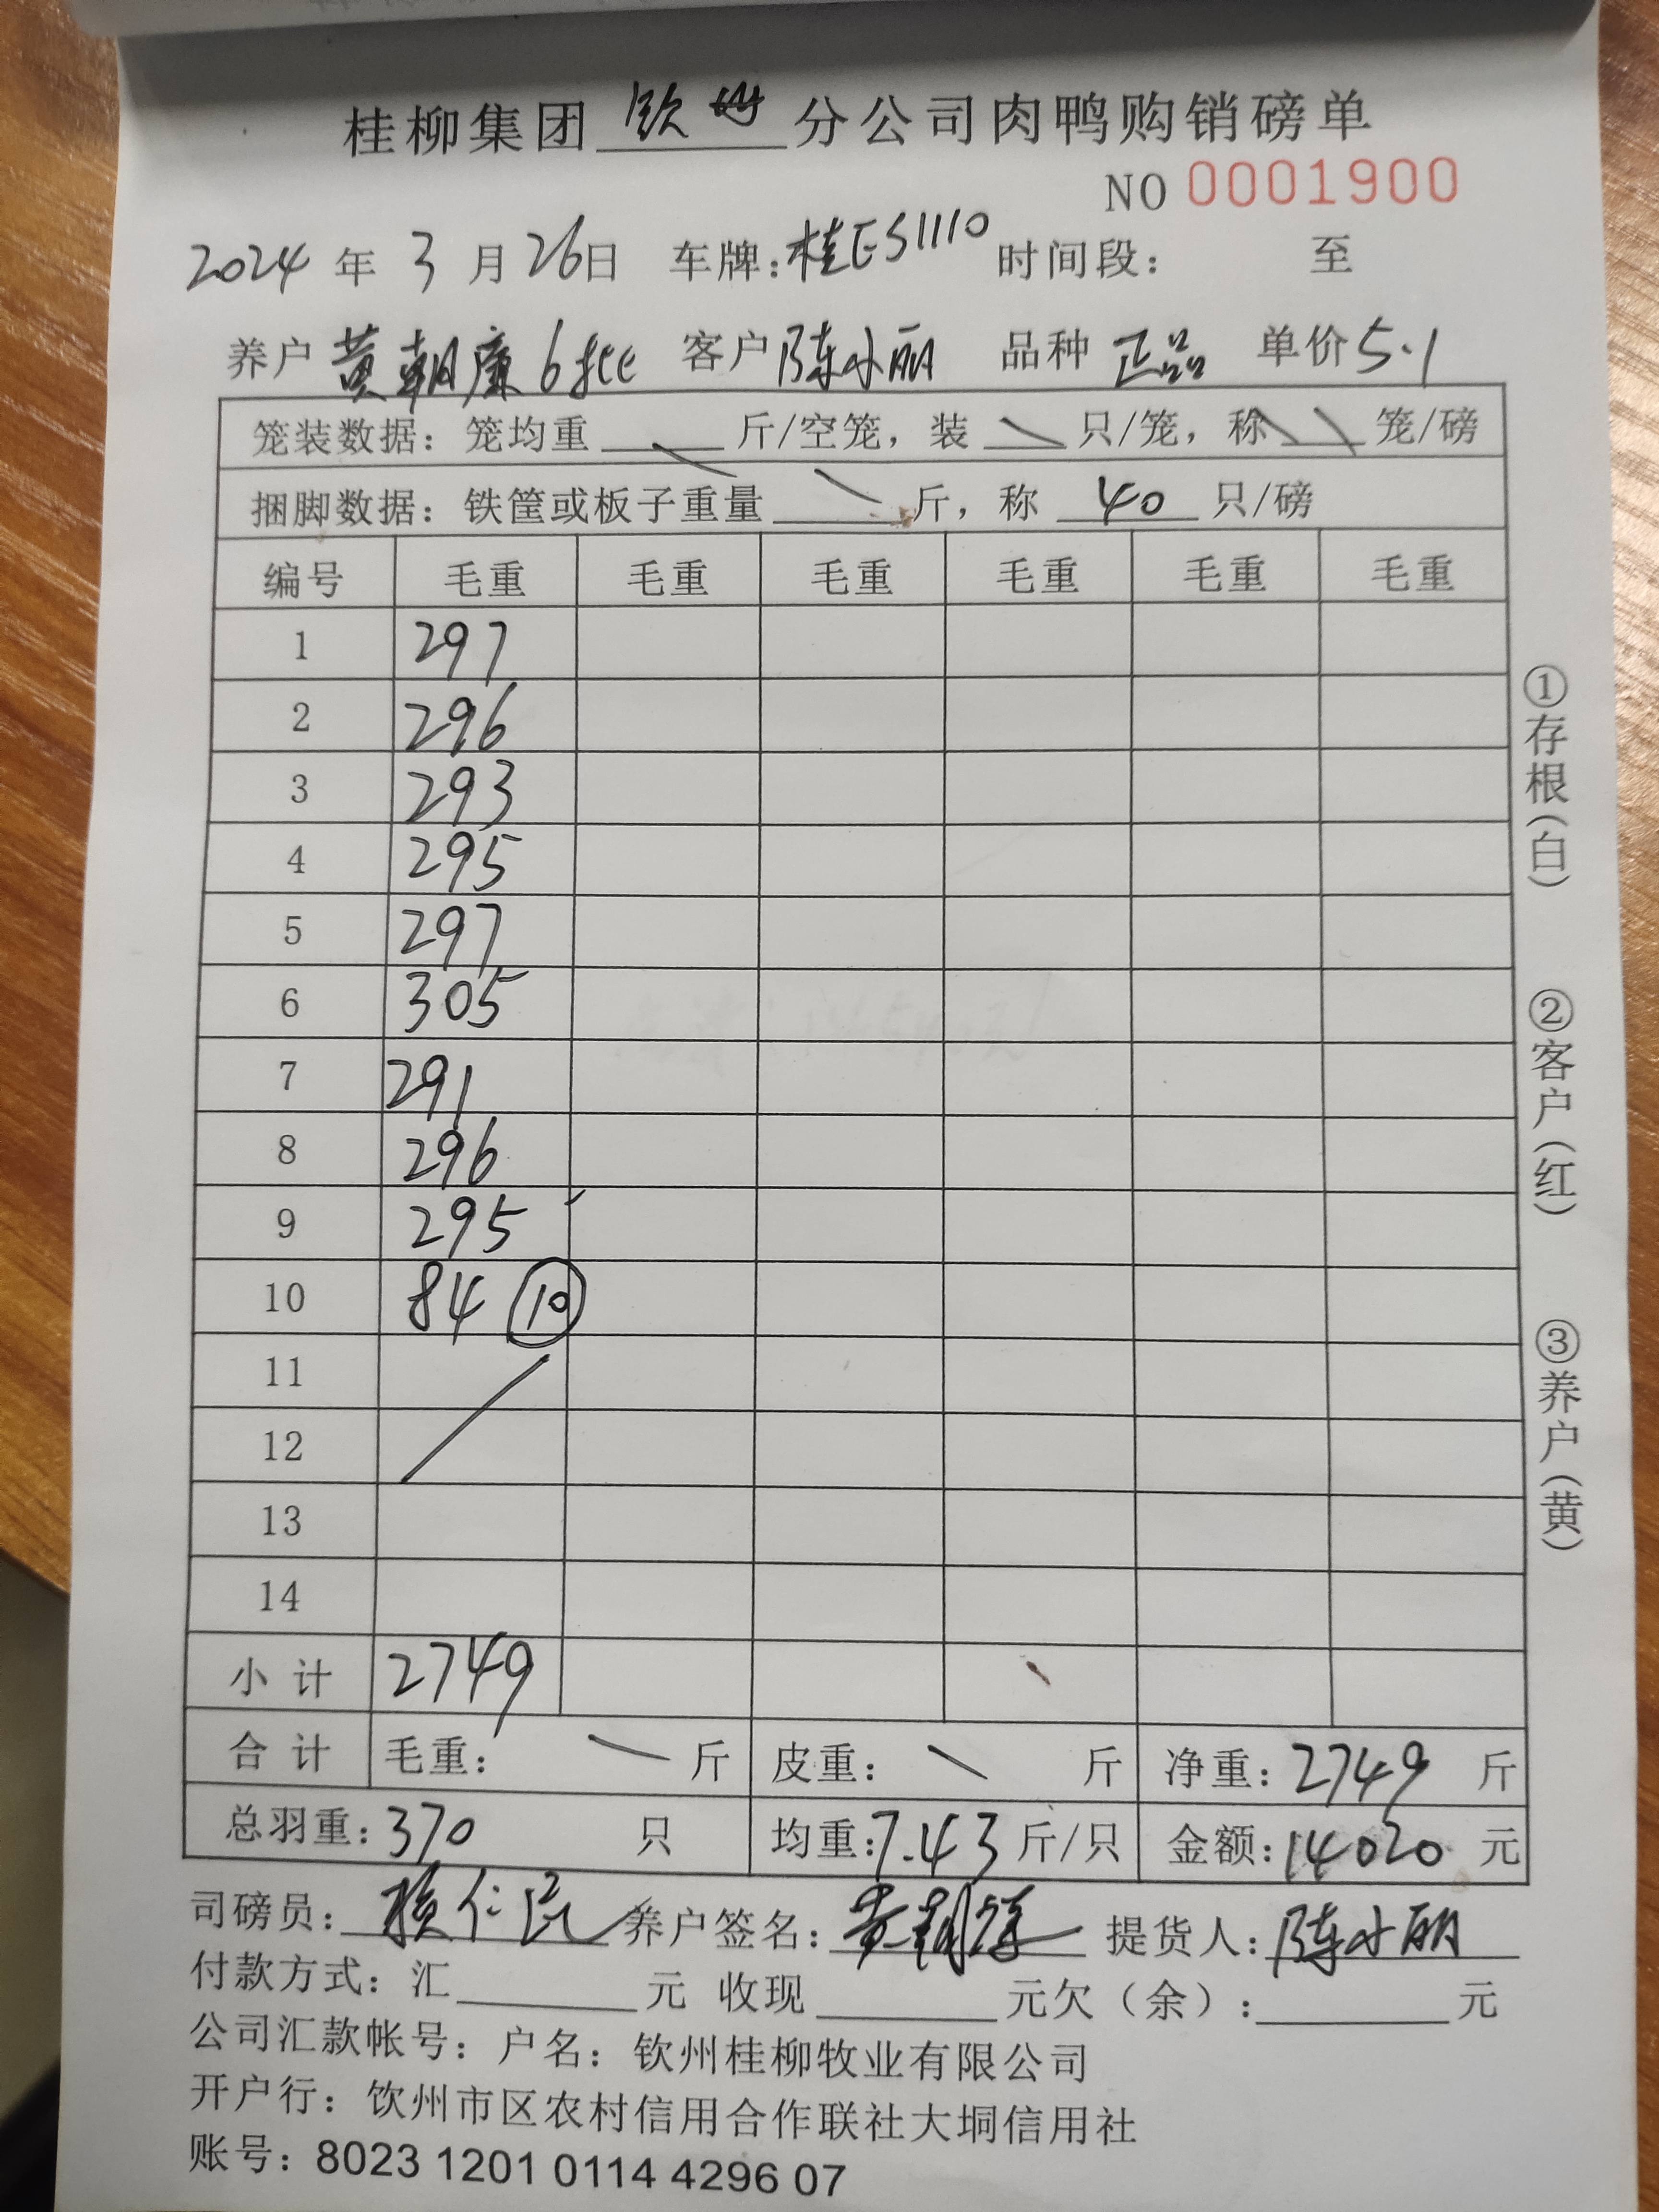 桂柳集团 钦州 分公司肉鸭购销磅单
NO 0001900
2024 年 3 月 26日 车牌:桂ES1110 时间段: 至
养户 黄朝廉 6批 客户 陈小丽 品种 正品 单价 5.1
笼装数据: 笼均重 斤/空笼, 装 只/笼, 称 笼/磅
捆脚数据: 铁筐或板子重量 斤, 称 40 只/磅
编号 毛重 毛重 毛重 毛重 毛重 毛重
1 297
2 296
3 293
4 295
5 297
6 305
7 291
8 296
9 295
10 84 ⑩
11
12
13
14
小计 2749
合计 毛重: 斤 皮重: 斤 净重: 2749 斤
总羽重: 370 只 均重: 7.43 斤/只 金额: 14020 元
司磅员: 养户签名: 提货人: 陈小丽
付款方式: 汇 元 收现 元欠(余): 元
公司汇款帐号: 户名: 钦州桂柳牧业有限公司
开户行: 钦州市区农村信用合作联社大垌信用社
账号: 8023 1201 0114 4296 07
①存根(白)
②客户(红)
③养户(黄)